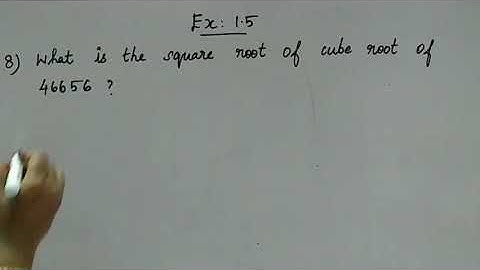 Ex: 1.5
8) What is the square root of cube root of
46656 ?